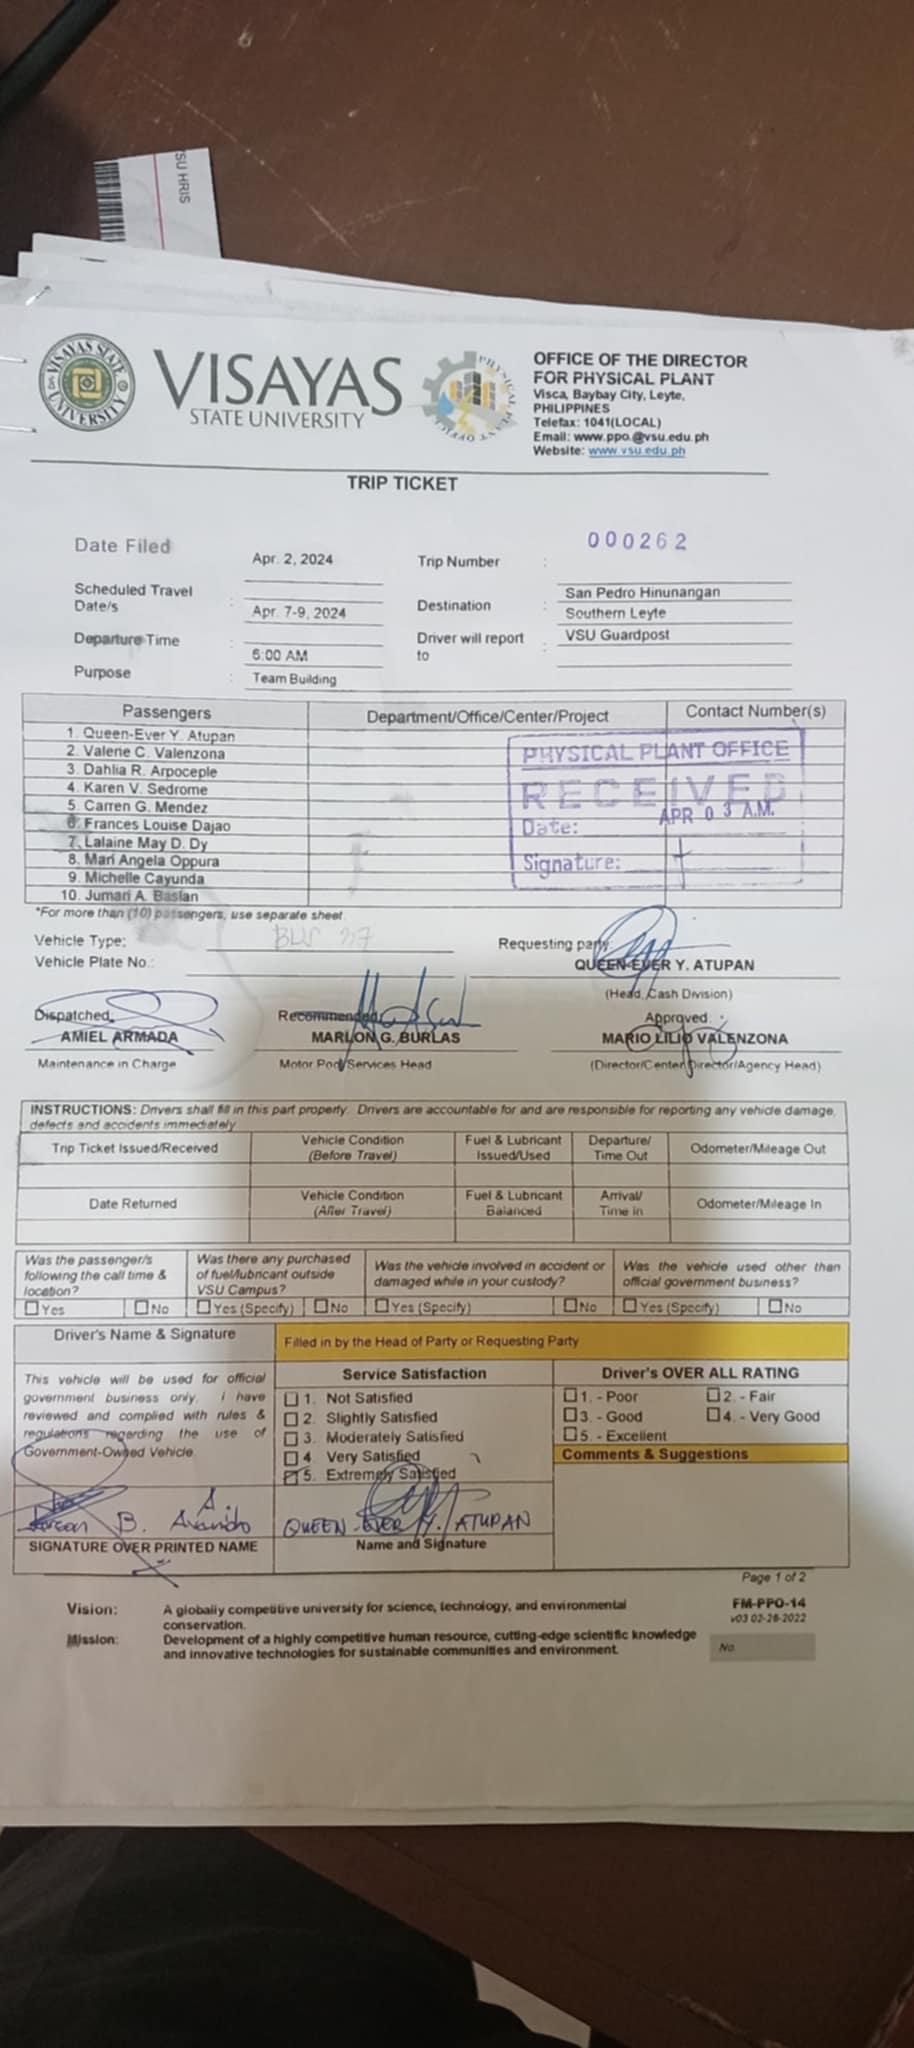 VSU HRIS
VISAYAS STATE UNIVERSITY
VISAYAS
STATE UNIVERSITY
OFFICE OF THE DIRECTOR
FOR PHYSICAL PLANT
Visca, Baybay City, Leyte,
PHILIPPINES
Telefax: 1041(LOCAL)
Email: www.ppo.@vsu.edu.ph
Website: www.vsu.edu.ph
TRIP TICKET
Date Filed Apr. 2, 2024 Trip Number : 000262
Scheduled Travel Date/s : Apr. 7-9, 2024 Destination : San Pedro Hinunangan
Southern Leyte
Departure Time : 6:00 AM Driver will report to : VSU Guardpost
Purpose : Team Building
Passengers Department/Office/Center/Project Contact Number(s)
1. Queen-Ever Y. Atupan
2. Valene C. Valenzona
3. Dahlia R. Arpoceple
4. Karen V. Sedrome
5. Carren G. Mendez
6. Frances Louise Dajao
7. Lalaine May D. Dy
8. Mari Angela Oppura
9. Michelle Cayunda
10. Jumari A. Baslan
PHYSICAL PLANT OFFICE
RECEIVED
Date: APR 03 A.M.
Signature:
*For more than (10) passengers, use separate sheet.
Vehicle Type: BUS Requesting party:
Vehicle Plate No.: QUEEN-EVER Y. ATUPAN
(Head, Cash Division)
Dispatched: Recommended: Approved:
AMIEL ARMADA MARLON G. BURLAS MARIO LILIO VALENZONA
Maintenance in Charge Motor Pool/Services Head (Director/Center Director/Agency Head)
INSTRUCTIONS: Drivers shall fill in this part properly. Drivers are accountable for and are responsible for reporting any vehicle damage,
defects and accidents immediately
Trip Ticket Issued/Received Vehicle Condition (Before Travel) Fuel & Lubricant Issued/Used Departure/ Time Out Odometer/Mileage Out
Date Returned Vehicle Condition (After Travel) Fuel & Lubricant Balanced Arrival/ Time In Odometer/Mileage In
Was the passenger/s following the call time & location? Was there any purchased of fuel/lubricant outside VSU Campus? Was the vehicle involved in accident or damaged while in your custody? Was the vehicle used other than official government business?
Yes No Yes (Specify) No Yes (Specify) No Yes (Specify) No
Driver's Name & Signature Filled in by the Head of Party or Requesting Party
This vehicle will be used for official
government business only. I have
reviewed and complied with rules &
regulations regarding the use of
Government-Owned Vehicle.
Service Satisfaction
1. Not Satisfied
2. Slightly Satisfied
3. Moderately Satisfied
4. Very Satisfied
5. Extremely Satisfied
Driver's OVER ALL RATING
1. - Poor 2. - Fair
3. - Good 4. - Very Good
5. - Excellent
Comments & Suggestions
B. QUEEN-EVER Y. ATUPAN
SIGNATURE OVER PRINTED NAME Name and Signature
Page 1 of 2
Vision: A globally competitive university for science, technology, and environmental
conservation.
Mission: Development of a highly competitive human resource, cutting-edge scientific knowledge
and innovative technologies for sustainable communities and environment.
FM-PPO-14
v03 02-28-2022
No.